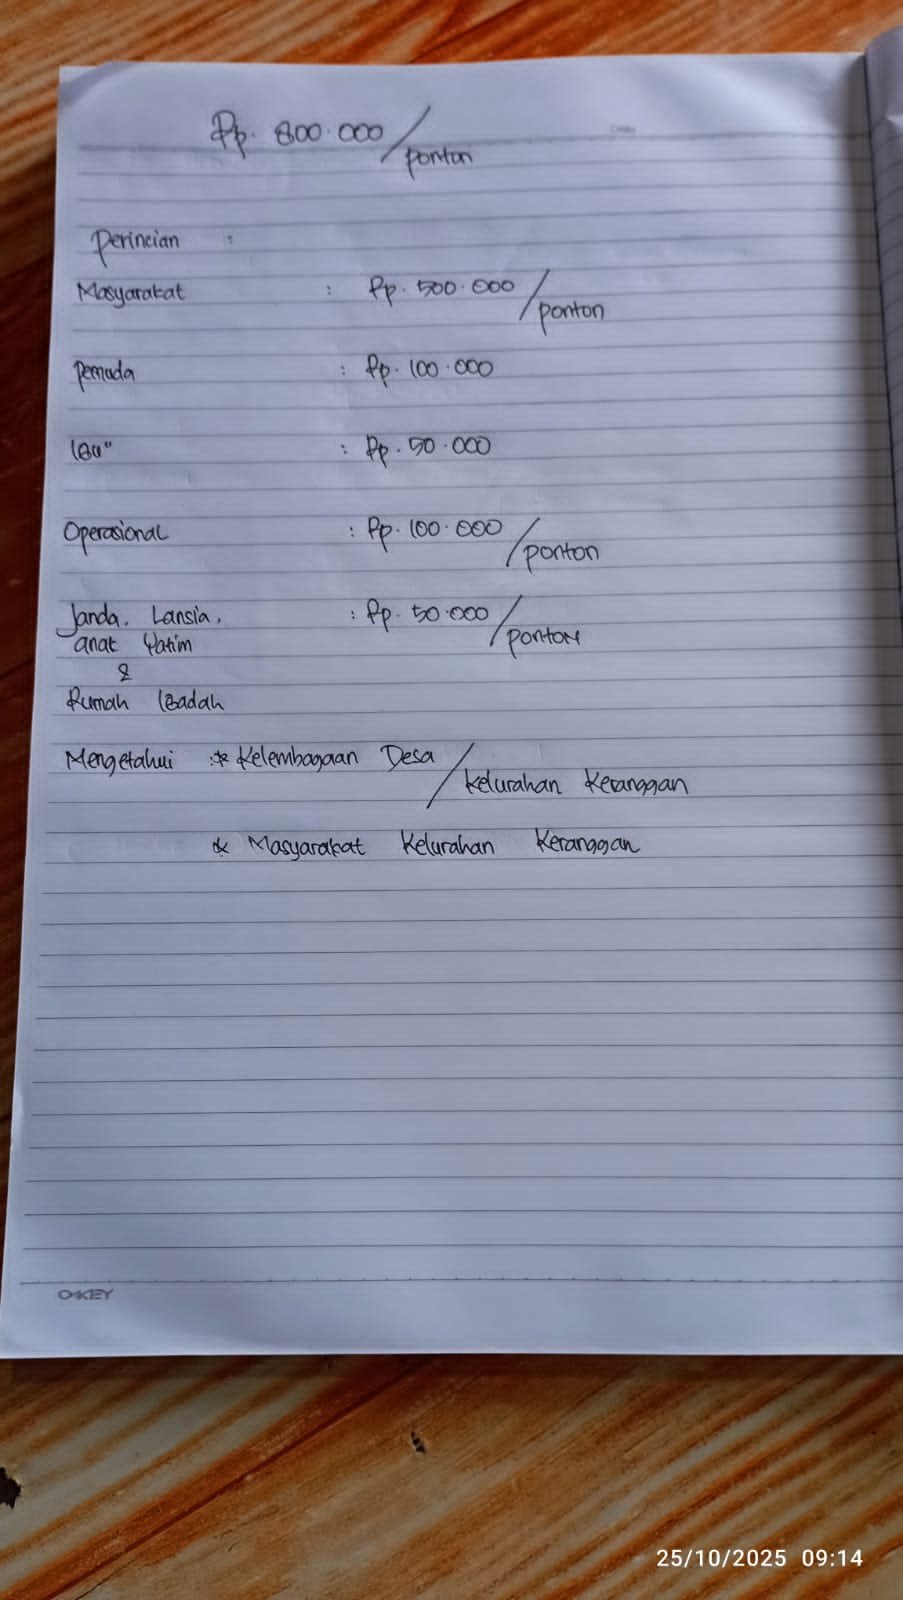 Rp. 800.000/ponton
Perincian :
Masyarakat : Rp. 500.000/ponton
Pemuda : Rp. 100.000
Ibu" : Rp. 50.000
Operasional : Rp. 100.000/ponton
Janda, Lansia, : Rp. 50.000/ponton
anak Yatim
&
Rumah Ibadah
Mengetahui : * Kelembagaan Desa/Kelurahan Keranggan
* Masyarakat Kelurahan Keranggan
OKEY
25/10/2025 09:14